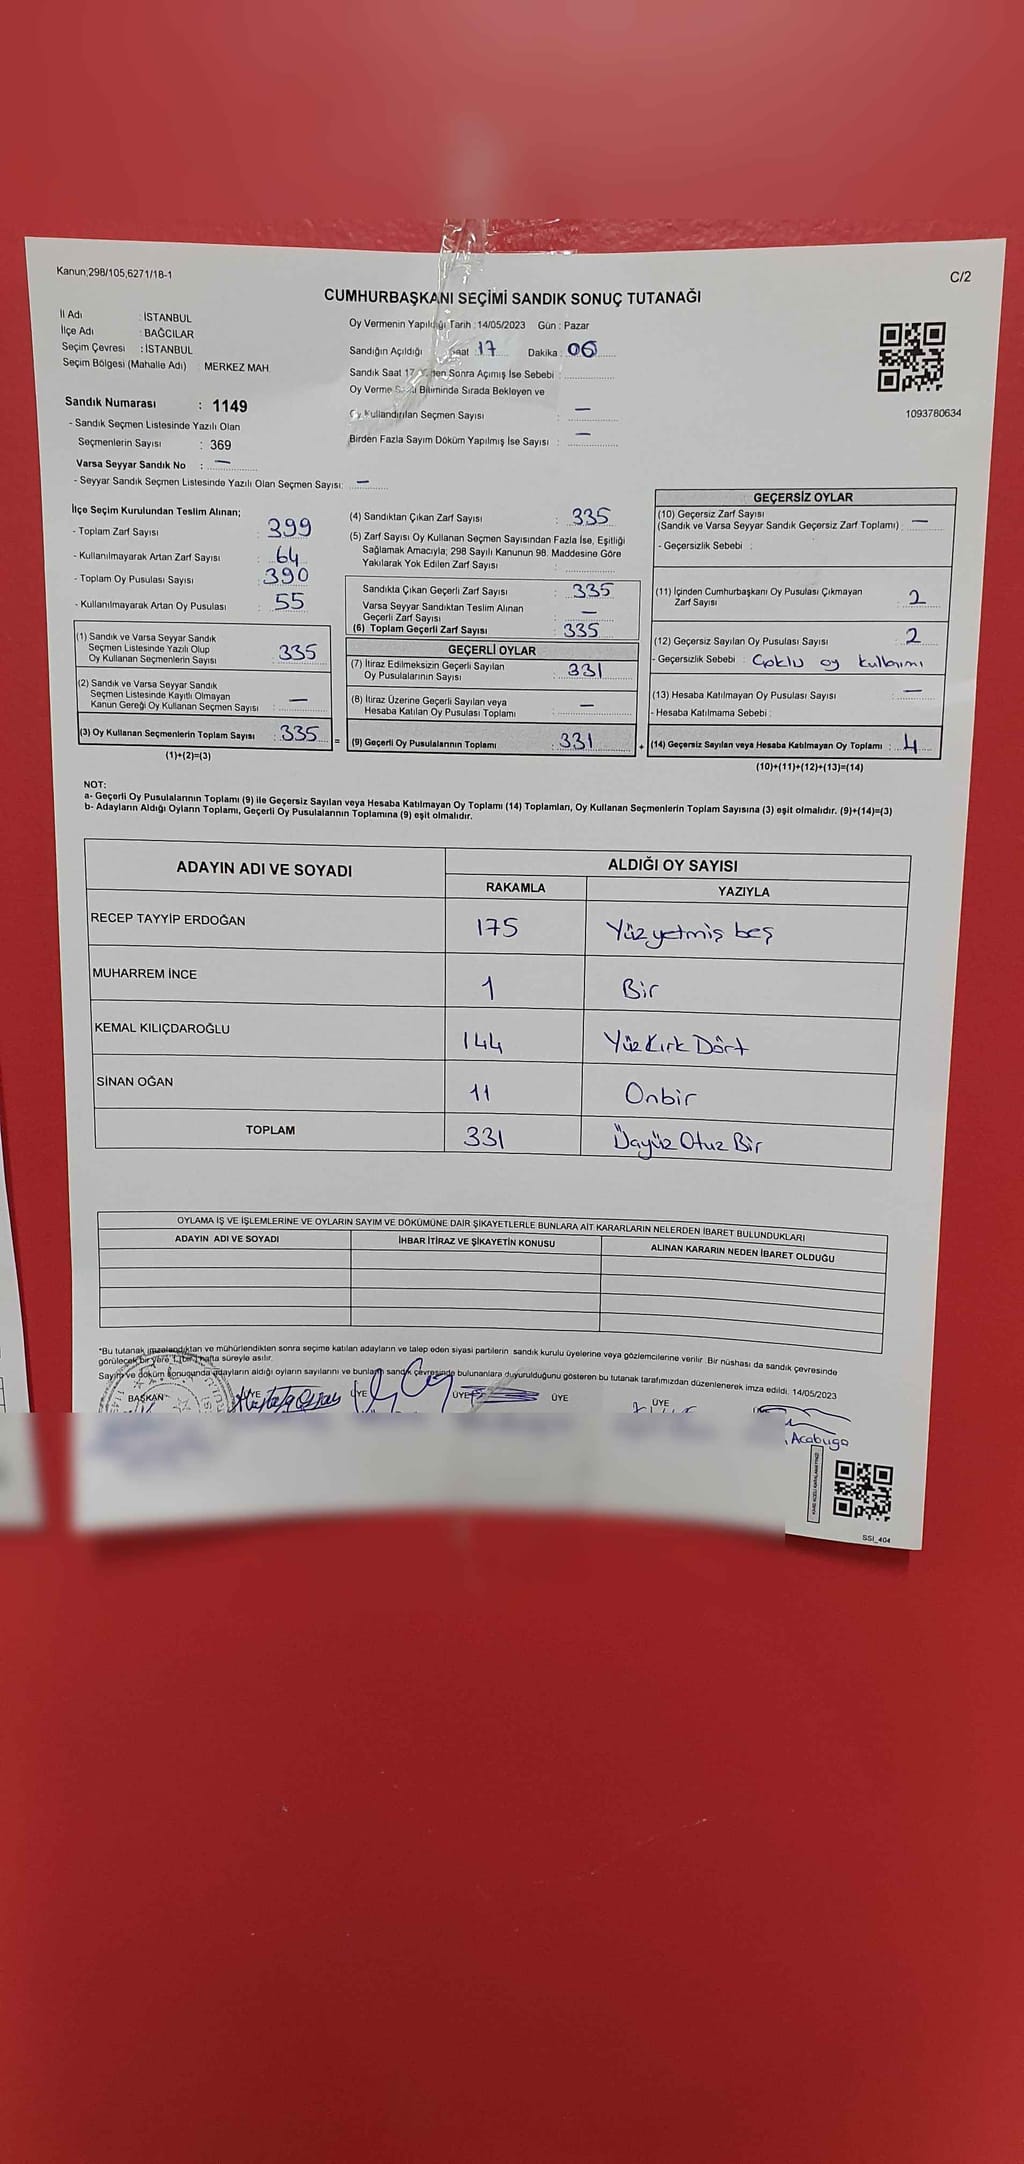 Kanun;298/105,6271/18-1
C/2
CUMHURBAŞKANI SEÇİMİ SANDIK SONUÇ TUTANAĞI
İl Adı : İSTANBUL
İlçe Adı : BAĞCILAR
Seçim Çevresi : İSTANBUL
Seçim Bölgesi (Mahalle Adı) : MERKEZ MAH.
Sandık Numarası : 1149
- Sandık Seçmen Listesinde Yazılı Olan
Seçmenlerin Sayısı : 369
Varsa Seyyar Sandık No : —
- Seyyar Sandık Seçmen Listesinde Yazılı Olan Seçmen Sayısı: —
Oy Vermenin Yapıldığı Tarih : 14/05/2023 Gün : Pazar
Sandığın Açıldığı Saat : 17 Dakika : 06
Sandık Saat 17 den Sonra Açımış İse Sebebi :
Oy Verme Bitiminde Sırada Bekleyen ve
Oy Kullandırılan Seçmen Sayısı : —
Birden Fazla Sayım Döküm Yapılmış İse Sayısı : —
1093780634
İlçe Seçim Kurulundan Teslim Alınan;
- Toplam Zarf Sayısı : 399
- Kullanılmayarak Artan Zarf Sayısı : 64
- Toplam Oy Pusulası Sayısı : 390
- Kullanılmayarak Artan Oy Pusulası : 55
(1) Sandık ve Varsa Seyyar Sandık
Seçmen Listesinde Yazılı Olup
Oy Kullanan Seçmenlerin Sayısı : 335
(2) Sandık ve Varsa Seyyar Sandık
Seçmen Listesinde Kayıtlı Olmayan
Kanun Gereği Oy Kullanan Seçmen Sayısı : —
(3) Oy Kullanan Seçmenlerin Toplam Sayısı : 335 =
(1)+(2)=(3)
(4) Sandıktan Çıkan Zarf Sayısı : 335
(5) Zarf Sayısı Oy Kullanan Seçmen Sayısından Fazla İse, Eşitliği
Sağlamak Amacıyla; 298 Sayılı Kanunun 98. Maddesine Göre
Yakılarak Yok Edilen Zarf Sayısı :
Sandıkta Çıkan Geçerli Zarf Sayısı : 335
Varsa Seyyar Sandıktan Teslim Alınan
Geçerli Zarf Sayısı : —
(6) Toplam Geçerli Zarf Sayısı : 335
GEÇERLİ OYLAR
(7) İtiraz Edilmeksizin Geçerli Sayılan
Oy Pusulalarının Sayısı : 331
(8) İtiraz Üzerine Geçerli Sayılan veya
Hesaba Katılan Oy Pusulası Toplamı : —
(9) Geçerli Oy Pusulalarının Toplamı : 331 +
GEÇERSİZ OYLAR
(10) Geçersiz Zarf Sayısı
(Sandık ve Varsa Seyyar Sandık Geçersiz Zarf Toplamı) : —
- Geçersizlik Sebebi :
(11) İçinden Cumhurbaşkanı Oy Pusulası Çıkmayan
Zarf Sayısı : 2
(12) Geçersiz Sayılan Oy Pusulası Sayısı : 2
- Geçersizlik Sebebi : Çoklu oy kullanımı
(13) Hesaba Katılmayan Oy Pusulası Sayısı : —
- Hesaba Katılmama Sebebi :
(14) Geçersiz Sayılan veya Hesaba Katılmayan Oy Toplamı : 4
(10)+(11)+(12)+(13)=(14)
NOT:
a- Geçerli Oy Pusulalarının Toplamı (9) ile Geçersiz Sayılan veya Hesaba Katılmayan Oy Toplamı (14) Toplamları, Oy Kullanan Seçmenlerin Toplam Sayısına (3) eşit olmalıdır. (9)+(14)=(3)
b- Adayların Aldığı Oyların Toplamı, Geçerli Oy Pusulalarının Toplamına (9) eşit olmalıdır.
ADAYIN ADI VE SOYADI
ALDIĞI OY SAYISI
RAKAMLA YAZIYLA
RECEP TAYYİP ERDOĞAN 175 Yüz yetmiş beş
MUHARREM İNCE 1 Bir
KEMAL KILIÇDAROĞLU 144 Yüz Kırk Dört
SİNAN OĞAN 11 Onbir
TOPLAM 331 Üçyüz Otuz Bir
OYLAMA İŞ VE İŞLEMLERİNE VE OYLARIN SAYIM VE DÖKÜMÜNE DAİR ŞİKAYETLERLE BUNLARA AİT KARARLARIN NELERDEN İBARET BULUNDUKLARI
ADAYIN ADI VE SOYADI İHBAR İTİRAZ VE ŞİKAYETİN KONUSU ALINAN KARARIN NEDEN İBARET OLDUĞU
*Bu tutanak imzalandıktan ve mühürlendikten sonra seçime katılan adayların ve talep eden siyasi partilerin sandık kurulu üyelerine veya gözlemcilerine verilir. Bir nüshası da sandık çevresinde
görülecek bir yere 1 (bir) hafta süreyle asılır.
Sayım ve döküm sonucunda adayların aldığı oyların sayılarını ve bunların sandık çevresinde bulunanlara duyurulduğunu gösteren bu tutanak tarafımızdan düzenlenerek imza edildi. 14/05/2023
BAŞKAN ÜYE ÜYE ÜYE ÜYE ÜYE
Acabuga
SSI_404